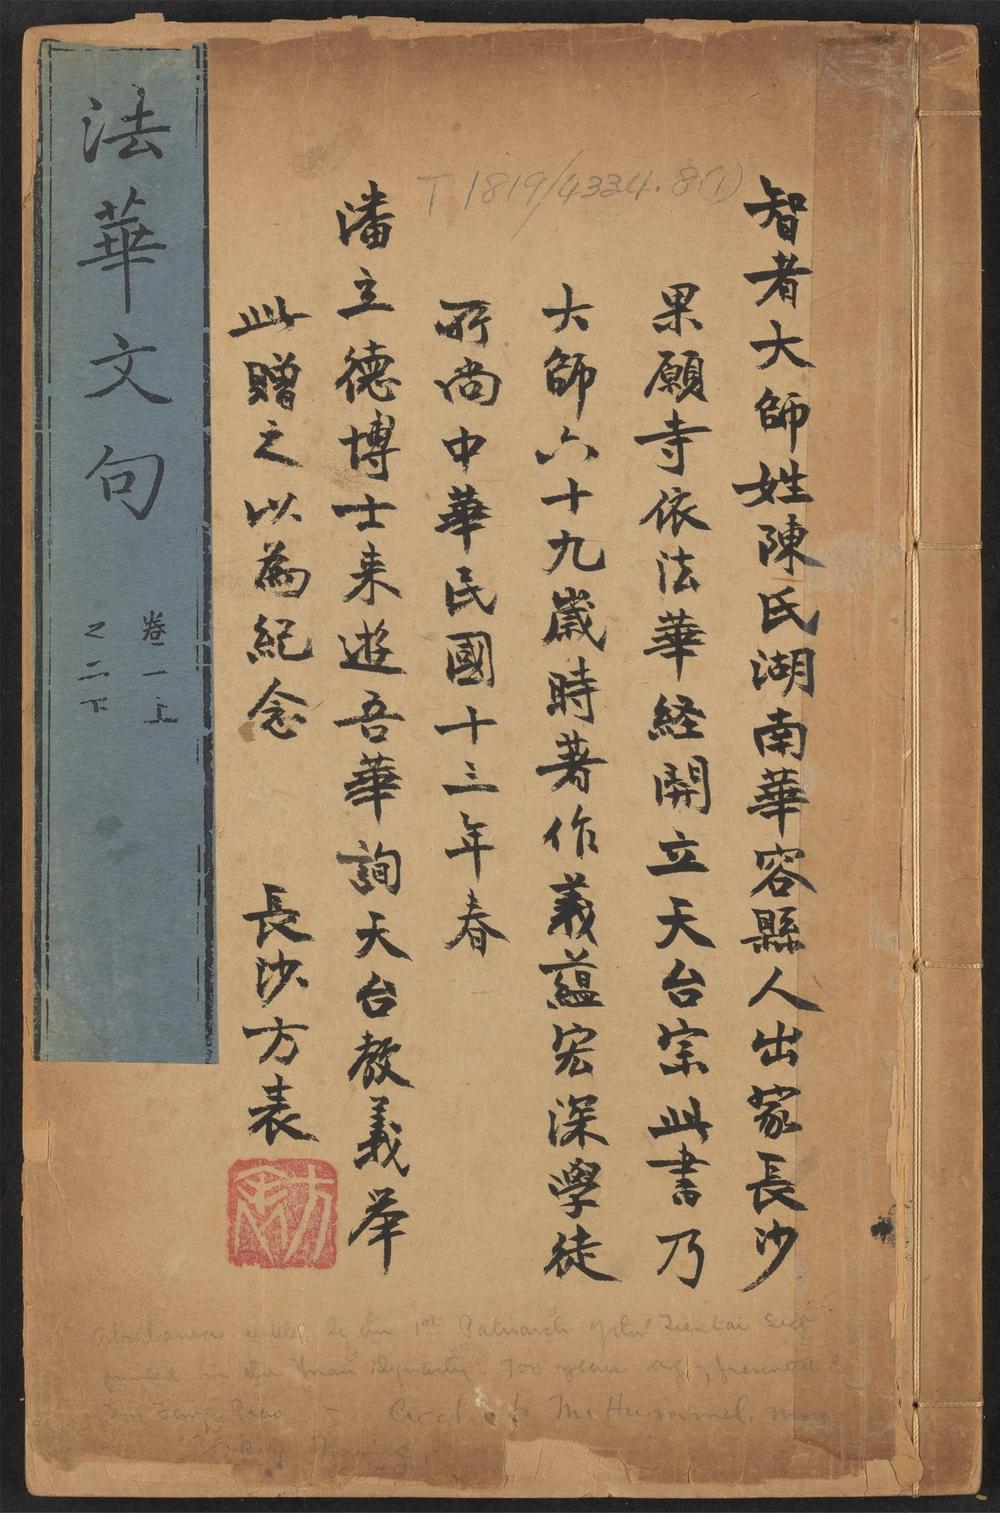 智者大師姓陳氏湖南華容縣人出家長沙
果願寺依法華経開立天台宗此書乃
大師六十九歲時著作義蘊宏深學徒
所尚中華民國十三年春
潘立德博士来遊吾華詢天台教義举
此贈之以為紀念 長沙方表
法華文句
卷一上
之二下
T 1819/4334.8(1)
by the 1st Patriarch of the Tientai Sect
printed in the Yuan Dynasty 700 years
方表